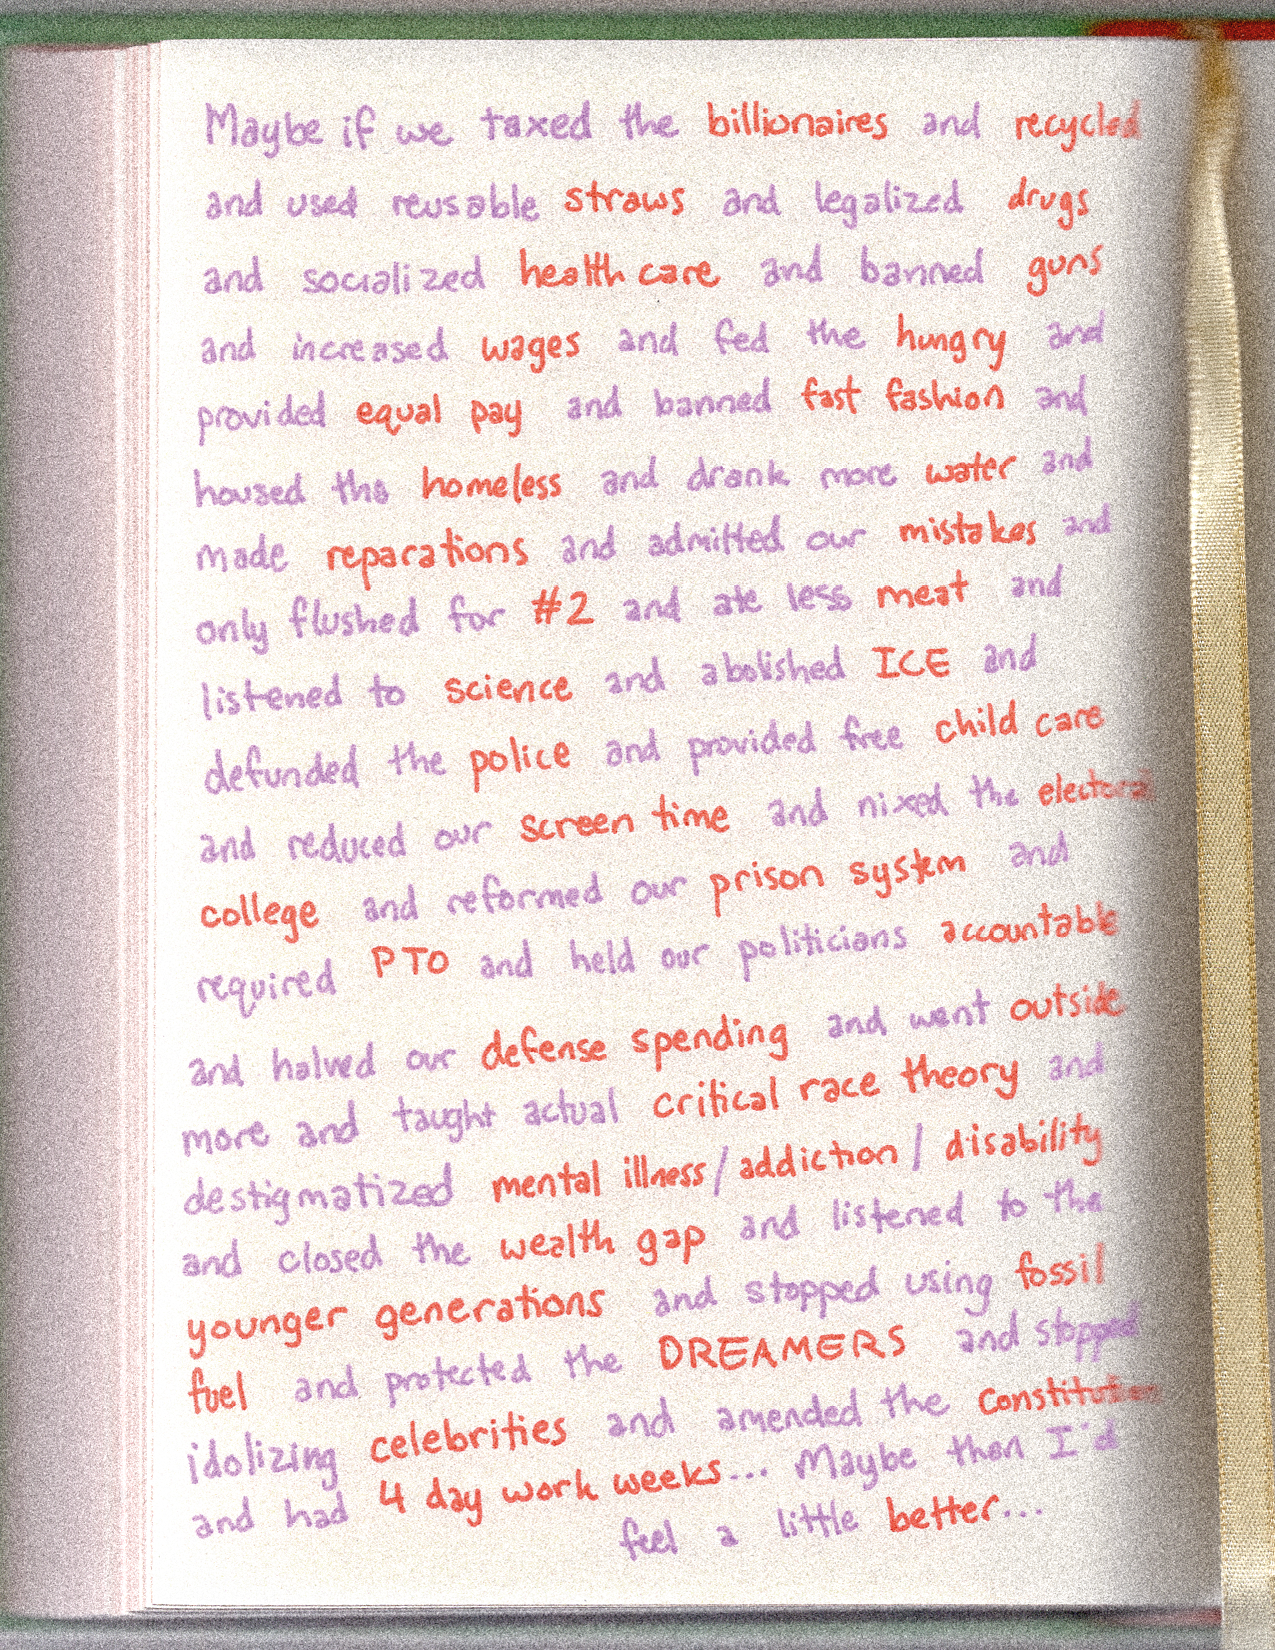 Maybe if we taxed the billionaires and recycled
and used reusable straws and legalized drugs
and socialized health care and banned guns
and increased wages and fed the hungry and
provided equal pay and banned fast fashion and
housed the homeless and drank more water and
made reparations and admitted our mistakes and
only flushed for #2 and ate less meat and
listened to science and abolished ICE and
defunded the police and provided free child care
and reduced our screen time and nixed the electoral
college and reformed our prison system and
required PTO and held our politicians accountable
and halved our defense spending and went outside
more and taught actual critical race theory and
destigmatized mental illness/addiction/disability
and closed the wealth gap and listened to the
younger generations and stopped using fossil
fuel and protected the DREAMERS and stopped
idolizing celebrities and amended the constitution
and had 4 day work weeks... Maybe then I'd
feel a little better...